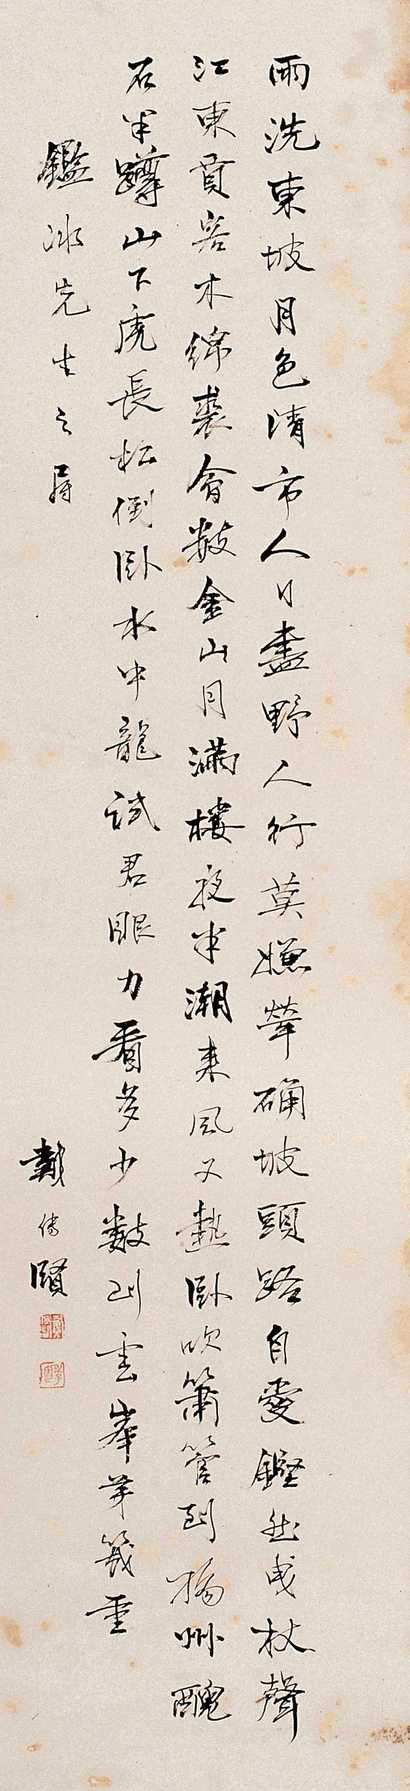 雨洗東坡月色清市人行盡野人行莫嫌犖确坡頭路自愛鏗然曳杖聲
江東賈客木綿裘會散金山月滿樓夜半潮來風又熟臥吹簫管到揚州醜
石半蹲山下虎長松倒臥水中龍試君眼力看多少數到雲峯第幾重
鑑冰先生之屬
戴傳賢